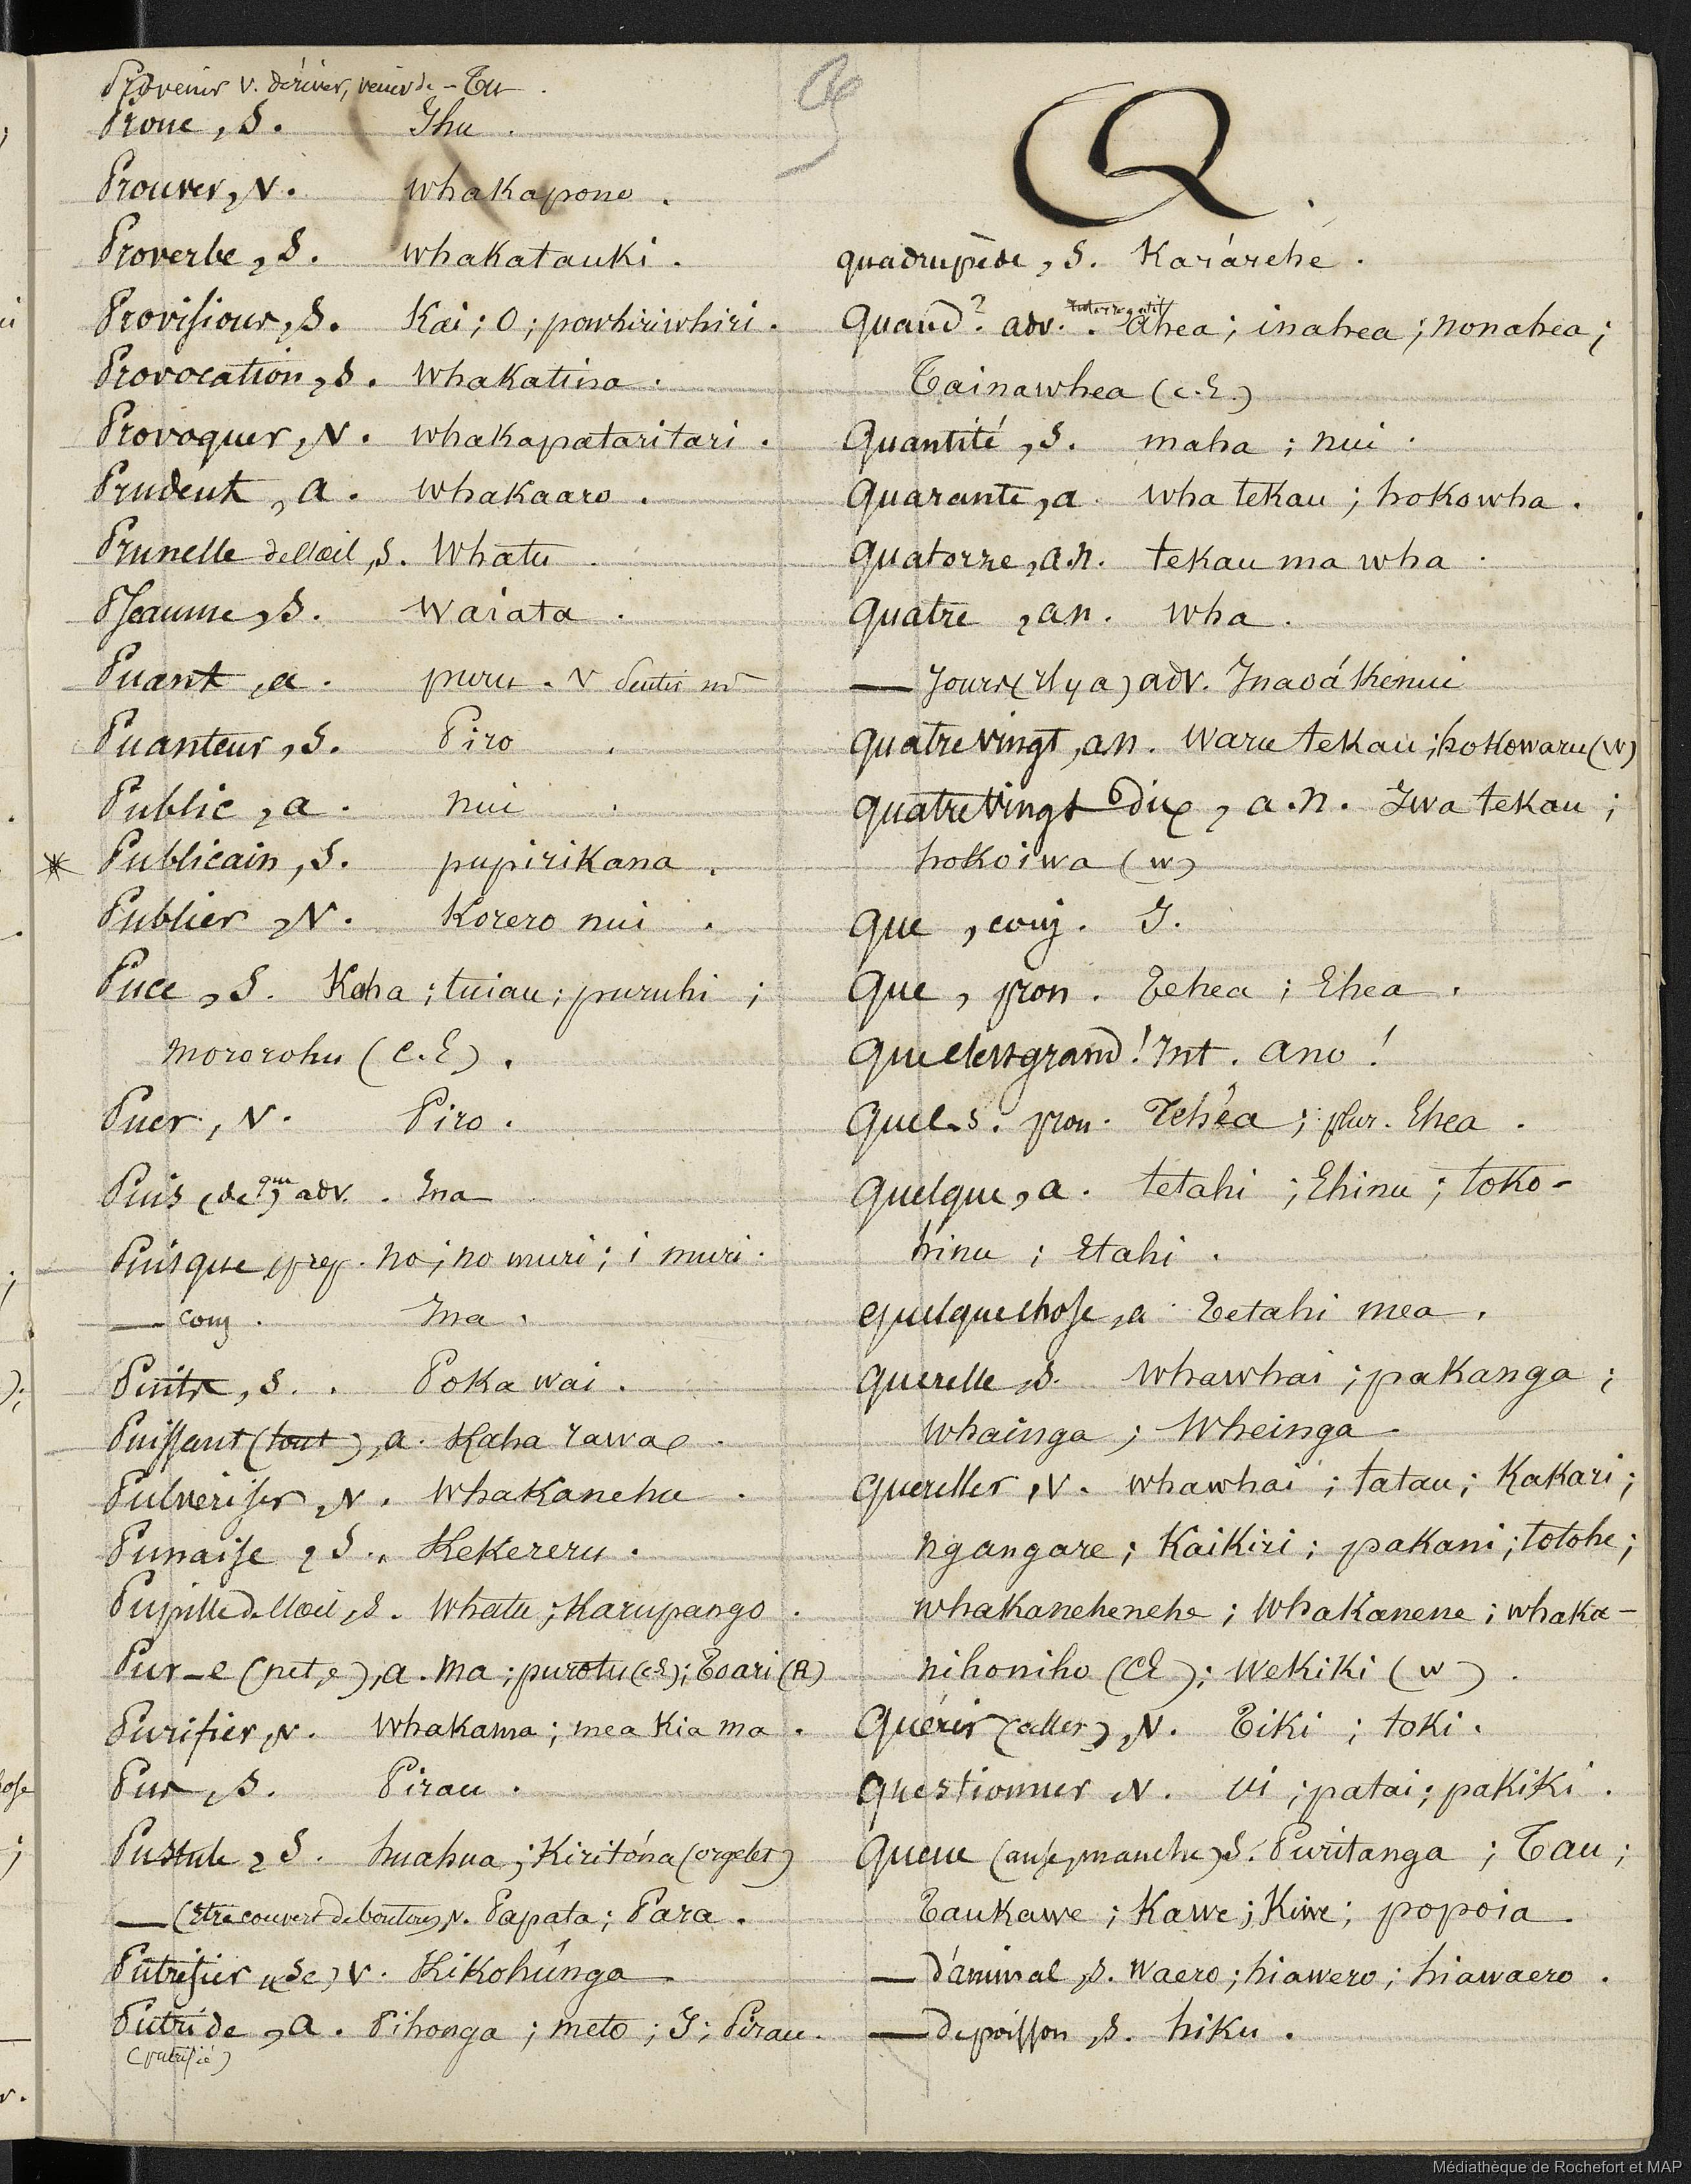 Provenir v. dériver, venir de - Tu.
Proue, S. Ihu.
Prouver, V. whakapono.
Proverbe, S. whakatauki.
Provisions, S. Kai; O; powhiriwhiri.
Provocation, S. whakatina.
Provoquer, V. whakapataritari.
Prudent, a. whakaaro.
Prunelle de l'œil, S. Whatu.
Pseaume, S. Waiata.
Puant, a. puru. V Sentir
Puanteur, S. Piro.
Public, a. nui.
* Publicain, S. pupirikana.
Publier, V. Korero nui.
Puce, S. Keha; tuiau; puruhi;
mororohu (c.E).
Puer, V. Piro.
Puis (de) que adv. Ina
Puisque, prep. no; no muri; i muri.
— conj. Ina.
Puits, S. Poka wai.
Puissant (tout), a. Kaha rawa.
Pulvériser, V. whakanehu.
Punaise, S. Kekereru.
Pupille de l'œil, S. Whatu; Karupango.
Pur-e (net, e), a. ma; purotu (cE); Toari (R)
Purifier, v. whakama; mea Kia ma.
Pus, S. Pirau.
Pustule, S. huahua; Kiritóna (orgelet)
— (être couvert de boutons) v. Papata; Para.
Putrifier (se) V. Kikohúnga
Putride, a. Pihonga; meto; I; Pirau.
(putrifié)
Q.
quadrupède, S. Karárehe.
Quand? adv. Interrogatif. ahea; inahea; nonahea;
Tainawhea (c.E.)
Quantité, S. maha; nui.
Quarante, a. wha tekau; hokowha.
Quatorze, a.n. tekau ma wha.
Quatre, an. wha.
— Jours (Il y a) adv. Inaoákenui
Quatre vingt, an. Waru tekau; hokowaru (W)
Quatre Vingt dix, a.n. Iwa tekau;
hokoiwa (w)
Que, conj. I.
Que, pron. Tehea; Ehea.
Que c'est grand! Int. Ano!
Quel.s. pron. Tehéa; plur. Ehea.
Quelque, a. tetahi; Ehinu; toko-
hinu; Etahi.
quelque chose, a. Tetahi mea.
Querelle, S. Whawhai; pakanga;
Whainga; Wheinga.
Quereller, V. whawhai; tatau; Kakari;
ngangare; Kaikiri; pakani; totohe;
whakanehenehe; Whakanene; whaka-
nihoniho (CE); Wekiki (w).
Quérir (aller), V. Tiki; toki.
Questionner, V. Ui; patai; pakiki.
Queue (anse, manche) S. Puritanga; Tau;
Taukawe; Kawe; Kiwe; popoia.
— d'animal, S. Waero; hiawero; hiawaero.
— de poisson, S. hiku.
Médiathèque de Rochefort et MAP